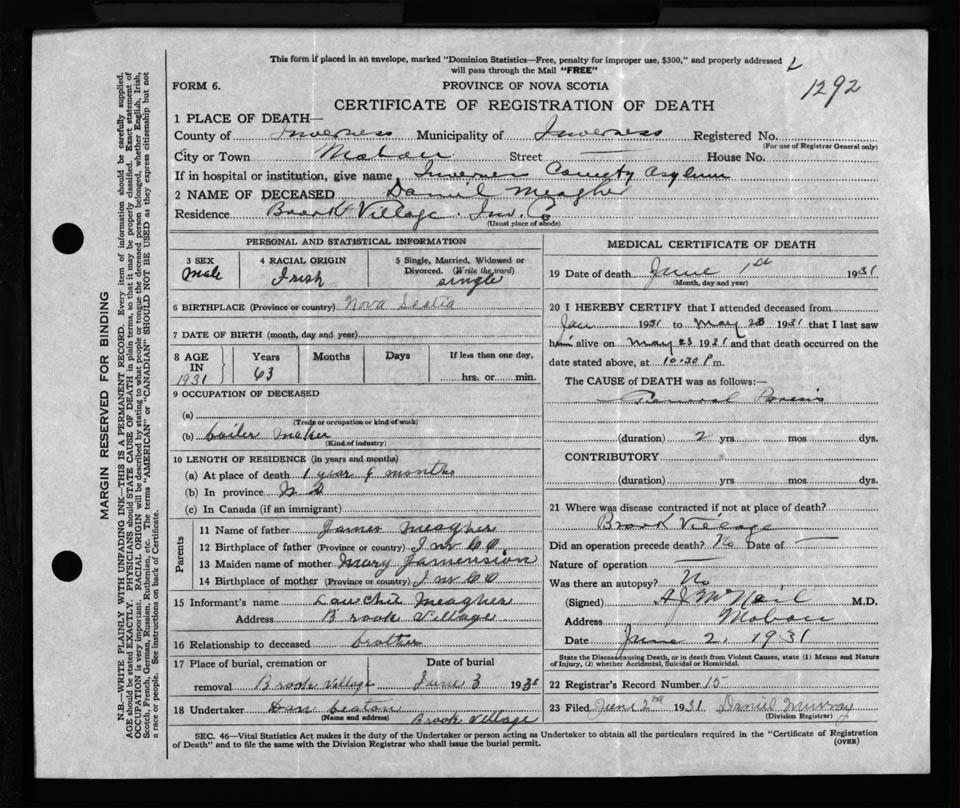 This form if placed in an envelope, marked "Dominion Statistics—Free, penalty for improper use, $300," and properly addressed
will pass through the Mail "FREE"
1292
FORM 6.
PROVINCE OF NOVA SCOTIA
CERTIFICATE OF REGISTRATION OF DEATH
1 PLACE OF DEATH—
County of Inverness Municipality of Inverness Registered No.
(For use of Registrar General only)
City or Town Mabou Street — House No.
If in hospital or institution, give name Inverness County Asylum
2 NAME OF DECEASED Daniel Meagher
Residence Brook Village. Inv. Co
(Usual place of abode)
PERSONAL AND STATISTICAL INFORMATION
3 SEX
Male
4 RACIAL ORIGIN
Irish
5 Single, Married, Widowed or
Divorced. (Write the word)
single
6 BIRTHPLACE (Province or country) Nova Scotia
7 DATE OF BIRTH (month, day and year)
8 AGE IN 1931
Years Months Days If less than one day,
63 hrs. or min.
9 OCCUPATION OF DECEASED
(a)
(Trade or occupation or kind of work)
(b) boiler maker
(Kind of industry)
10 LENGTH OF RESIDENCE (in years and months)
(a) At place of death 1 year 9 months
(b) In province
(c) In Canada (if an immigrant)
Parents
11 Name of father James Meagher
12 Birthplace of father (Province or country) Inv Co
13 Maiden name of mother Mary
14 Birthplace of mother (Province or country) Inv Co
15 Informant's name Lauchie Meagher
Address Brook Village
16 Relationship to deceased brother
17 Place of burial, cremation or Date of burial
removal Brook Village June 3 193
18 Undertaker Dan Beaton
(Name and address) Brook Village
MEDICAL CERTIFICATE OF DEATH
19 Date of death June 1st 1931
(Month, day and year)
20 I HEREBY CERTIFY that I attended deceased from
Jan 1931 to May 23 1931 that I last saw
him alive on May 23 1931 and that death occurred on the
date stated above, at 10.30 P m.
The CAUSE of DEATH was as follows:—
General Paresis
(duration) 2 yrs mos dys.
CONTRIBUTORY
(duration) yrs. mos. dys.
21 Where was disease contracted if not at place of death?
Brook Village
Did an operation precede death? No Date of —
Nature of operation —
Was there an autopsy? No
(Signed) A J McNeil M.D.
Address Mabou
Date June 2, 1931
State the Disease causing Death, or in death from Violent Causes, state (1) Means and Nature
of Injury, (2) whether Accidental, Suicidal or Homicidal.
22 Registrar's Record Number 15
23 Filed June 2nd 1931 Daniel Murray
(Division Registrar)
SEC. 46—Vital Statistics Act makes it the duty of the Undertaker or person acting as Undertaker to obtain all the particulars required in the "Certificate of Registration
of Death" and to file the same with the Division Registrar who shall issue the burial permit. (OVER)
MARGIN RESERVED FOR BINDING
N.B.—WRITE PLAINLY WITH UNFADING INK—THIS IS A PERMANENT RECORD. Every item of information should be carefully supplied.
AGE should be stated EXACTLY. PHYSICIANS should STATE CAUSE OF DEATH in plain terms, so that it may be properly classified. Exact statement of
OCCUPATION is very important. RACIAL ORIGIN will be described by stating to what people or tongue the deceased person belonged, whether English, Irish,
Scotch, French, German, Russian, Ruthenian, etc. The terms "AMERICAN" or "CANADIAN" SHOULD NOT BE USED as they express citizenship but not
a race or people. See instructions on back of Certificate.